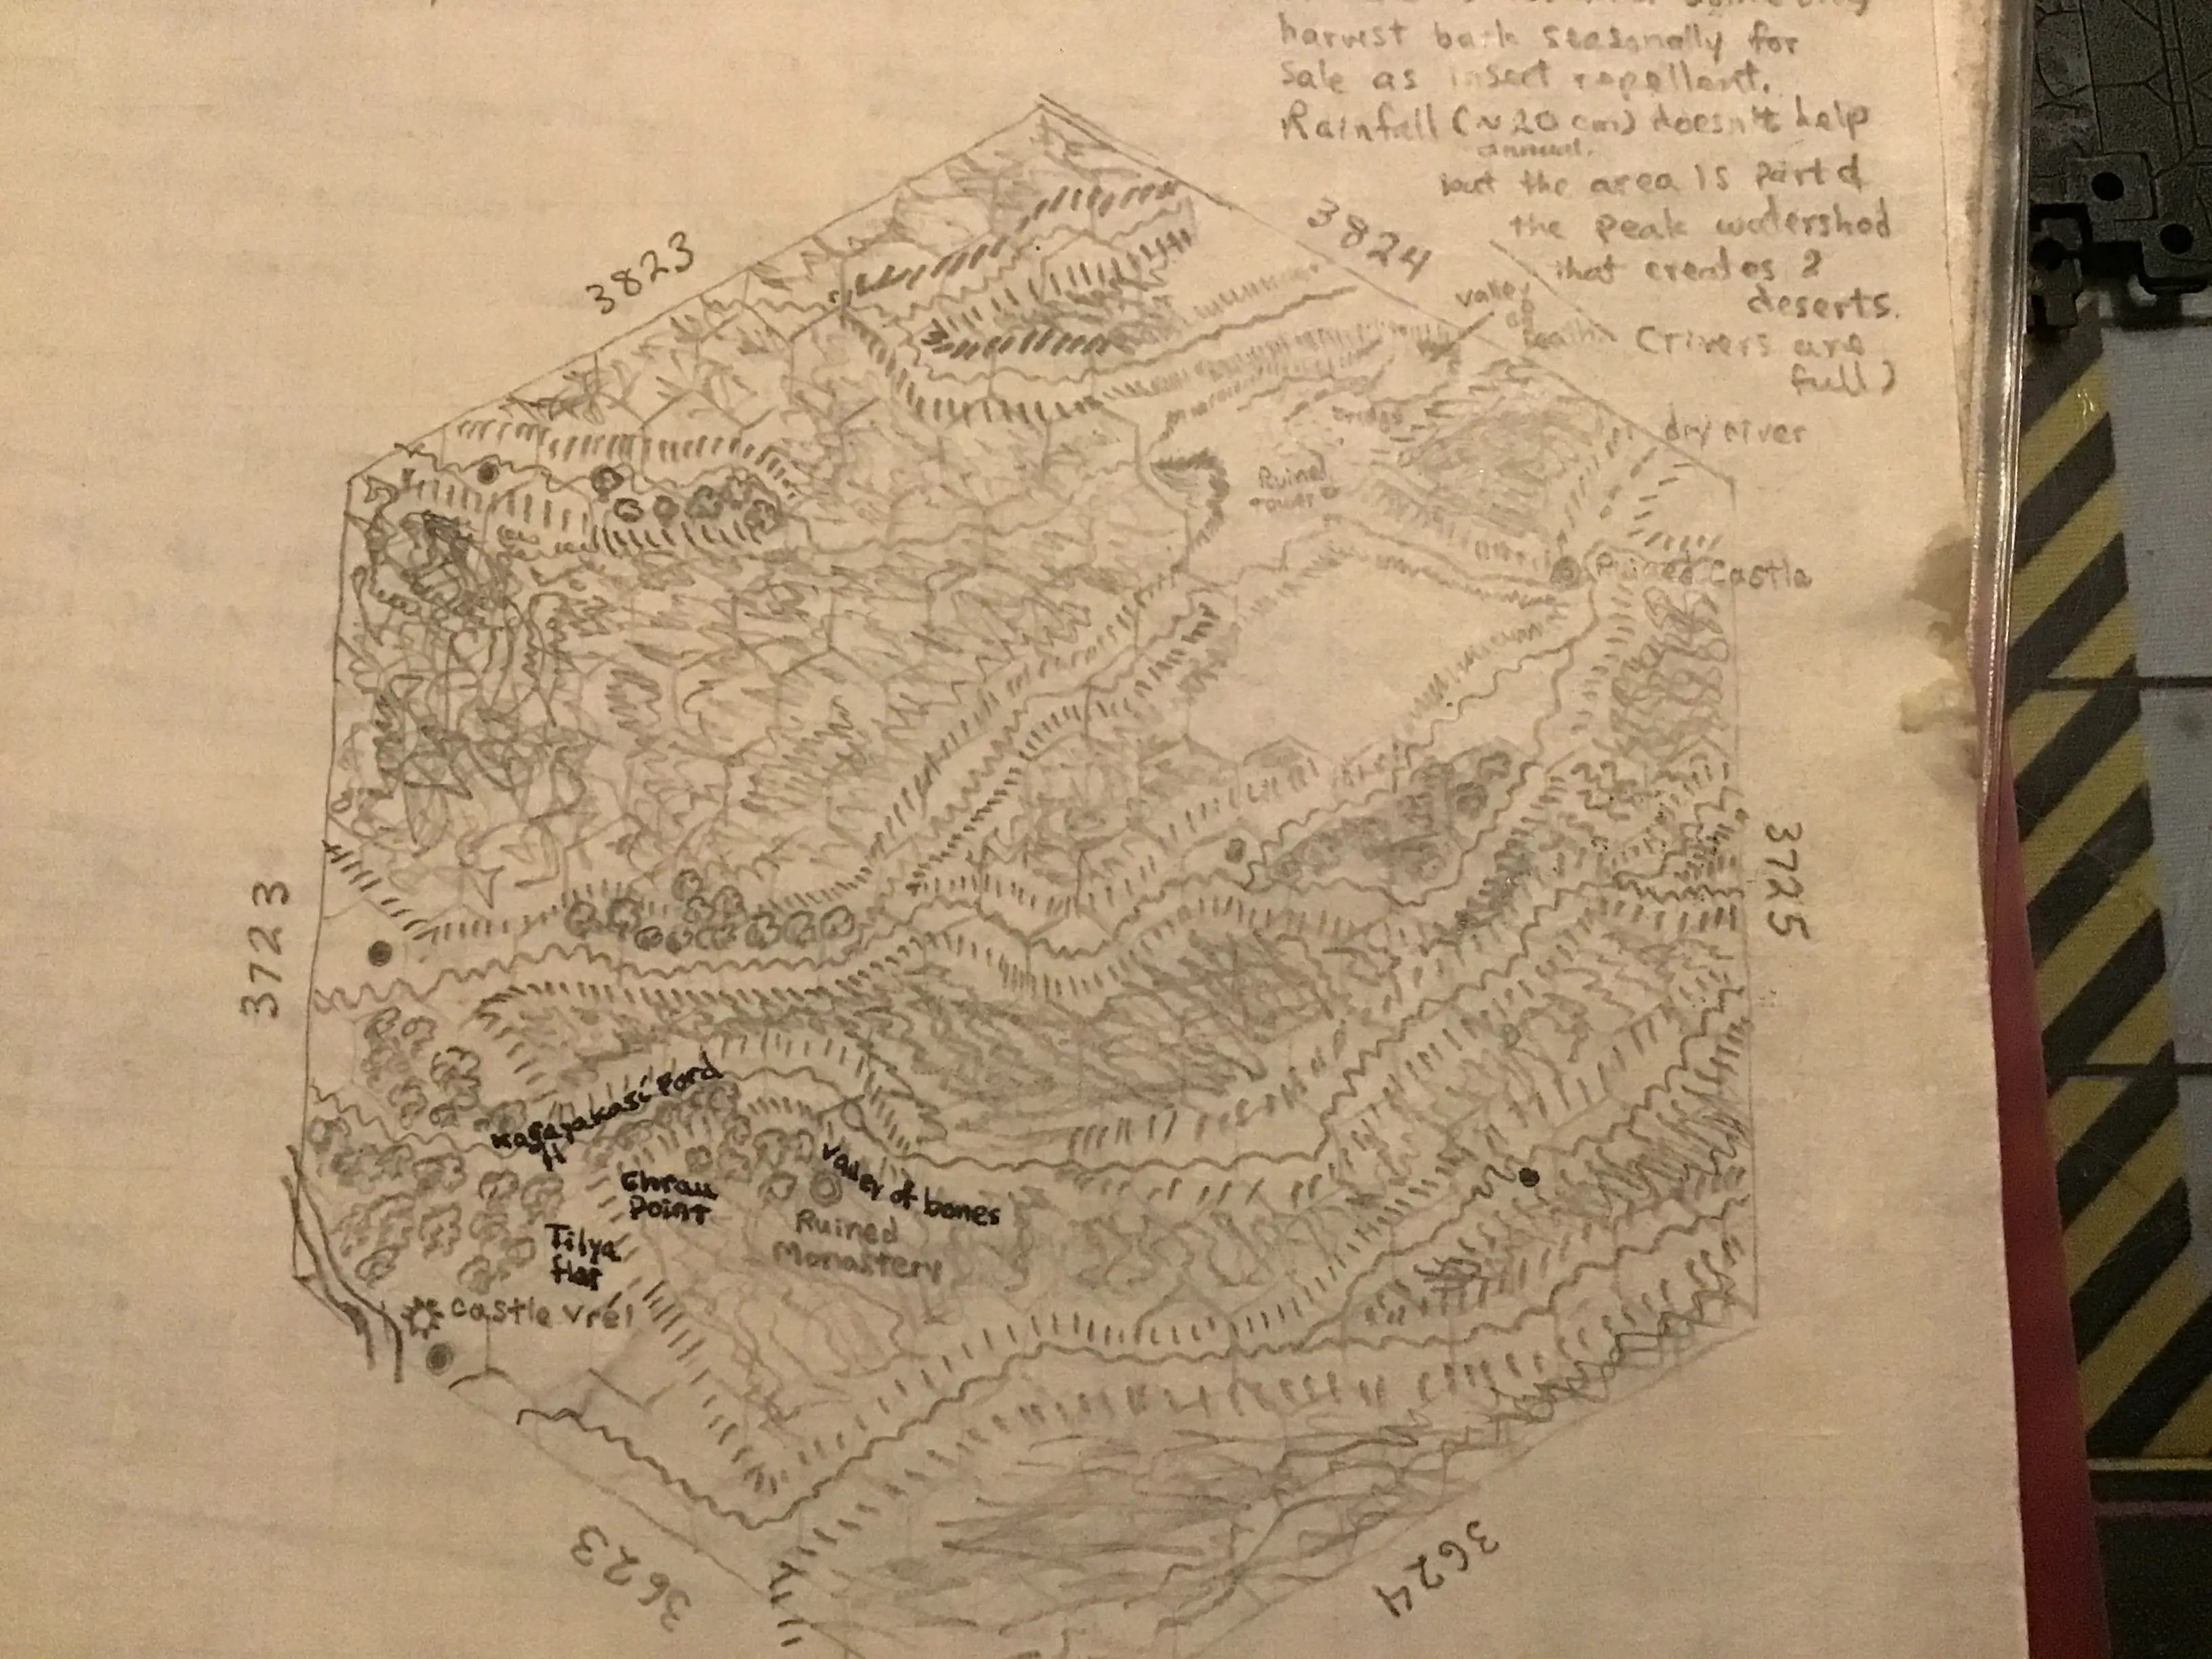 harvest bark seasonally for
sale as insect repellent.
Rainfall (~20 cm) doesn't help
annual.
but the area is part of
the peak watershed
that creates 2
deserts.
(rivers are
full)
3823
3824
valley
of
death
dry river
bridge
Ruined
tower
Ruined Castle
3723
3725
Kagayakasi Ford
Chrau
Point
valley of bones
Ruined
Monastery
Tilya
flat
castle Vrél
3623
3624